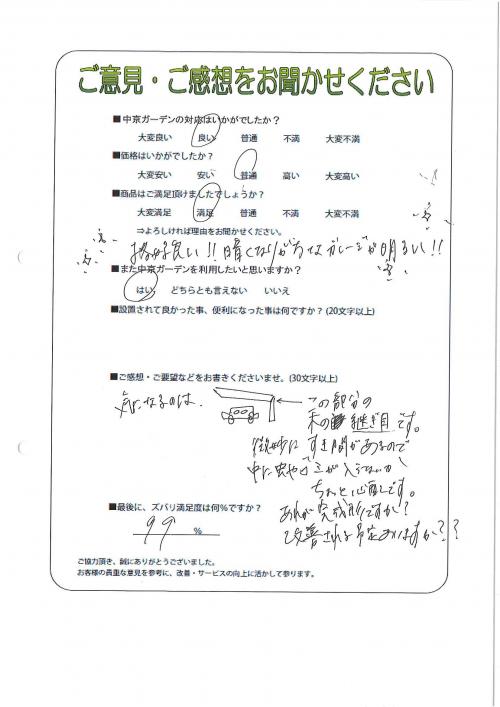 ご意見・ご感想をお聞かせください
■中京ガーデンの対応はいかがでしたか？
大変良い 良い 普通 不満 大変不満
■価格はいかがでしたか？
大変安い 安い 普通 高い 大変高い
■商品はご満足頂けましたでしょうか？
大変満足 満足 普通 不満 大変不満
⇒よろしければ理由をお聞かせください。
良い!! 暗くなりがちなガレージが明るい!!
■また中京ガーデンを利用したいと思いますか？
はい どちらとも言えない いいえ
■設置されて良かった事、便利になった事は何ですか？(20文字以上)
■ご感想・ご要望などをお書きくださいませ。(30文字以上)
気になるのは、
この部分の
木の継ぎ目です。
微妙にすき間があるので
中に虫やゴミが入らないか
ちょっと心配です。
あれが完成形ですか？
改善される予定ありますか？？
■最後に、ズバリ満足度は何％ですか？
99 %
ご協力頂き、誠にありがとうございました。
お客様の貴重な意見を参考に、改善・サービスの向上に活かして参ります。